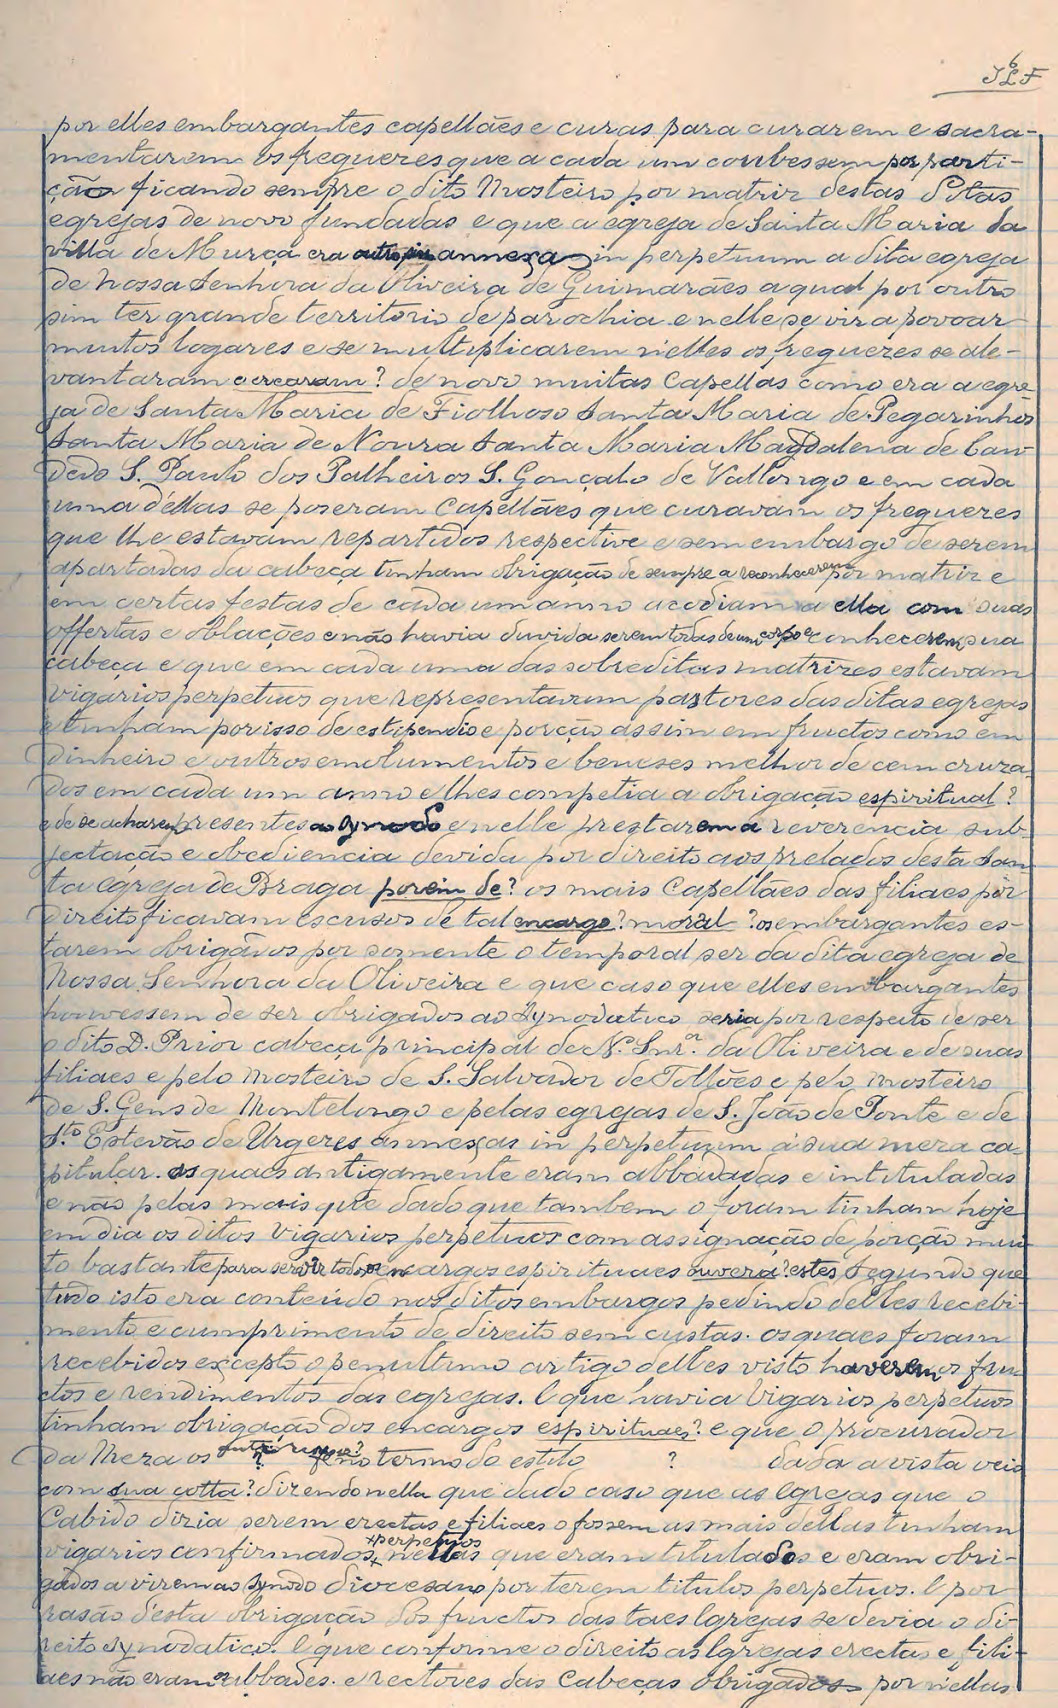 6
JLF
por elles embargantes capellães e curas para curarem e sacra-
mentarem os freguezes que a cada um coubessem por parti-
ção ficando sempre o dito Mosteiro por matriz destas ditas
egrejas de novo fundadas e que a egreja de Santa Maria da
villa de Murça era outro sim annexa in perpetuum a dita egreja
de Nossa Senhora da Oliveira de Guimarães a qual por outro
sim ter grande territorio de parochia e nelle se vir a povoar
muitos logares e se multiplicarem n'elles os freguezes se ale-
vantaram e crearam? de novo muitas Capellas como era a egre-
ja de Santa Maria de Fiolhoso Santa Maria de Pegarinhos
Santa Maria de Noura Santa Maria Magdalena de Can-
dedo S. Paulo dos Palheiros S. Gonçalo de Vallongo e em cada
uma d'éllas se pozeram Capellães que curavam os freguezes
que lhe estavam repartidos respective e sem embargo de serem
apartadas da cabeça tinham obrigação de sempre a reconhecerem por matriz e
em certas festas de cada um anno acodiam a ella com suas
offertas e oblações e não havia duvida serem todas de um corpo e conhecerem sua
cabeça e que em cada uma das sobreditas matrizes estavam
vigarios perpetuos que representavam pastores das ditas egrejas
e tinham por isso de estipendio e porção assim em fructos como em
dinheiro e outros emolumentos e beneses melhor de cem cruza-
dos em cada um anno e lhes competia a obrigação espiritual?
e de se acharem presentes ao Synodo e nelle prestarem a reverencia sub-
jectação e obediencia devida por direito aos prelados desta San-
ta egreja de Braga porem de? os mais Capellães das filiaes por
direito ficavam escusos de tal encargo? moral? os embargantes es-
tarem obrigados por somente o temporal ser da dita egreja de
Nossa Senhora da Oliveira e que caso que elles embargantes
houvessem de ser obrigados ao Synodatico seria por respeito de ser
o dito D. Prior cabeça principal de N. Snr.ª da Oliveira e de suas
filiaes e pelo Mosteiro de S. Salvador de Tollões e pelo mosteiro
de S. Gens de Montelongo e pelas egrejas de S. João de Ponte e de
S.to Estevão de Urgeres annexas in perpetuum á sua meza ca-
pitular. as quaes antigamente eram abbadadas e intituladas
e não pelas mais que dado que tambem o foram tinham hoje
em dia os ditos Vigarios perpetuos com assignação de porção mui-
to bastante para servir todos os encargos espirituaes ouvera? estes segundo que
tudo isto era conteúdo nos ditos embargos pedindo delles recebi-
mento e cumprimento de direito sem custas. os quaes foram
recebidos excepto o penultimo artigo delles visto haverem os fru-
ctos e rendimentos das egrejas. E que havia Vigarios perpetuos
tinham obrigação dos encargos espirituaes? e que o procurador
da Meza os no termo do estilo ? dada a vista veio
com sua cotta? dizendo nella que dado caso que as Egrejas que o
Cabido dizia serem erectas e filiaes o fossem as mais dellas tinham
vigarios confirmados perpetuos nellas que eram titulados e eram obri-
gados a virem ao Synodo diocesano por terem titulos perpetuos. E por
rasão d'esta obrigação dos fructos das taes Egrejas se devia o di-
reito synodatico. E que conforme o direito as Egrejas erectas e fili-
aes não eram os abbades e rectores das Cabeças obrigados por n'ellas